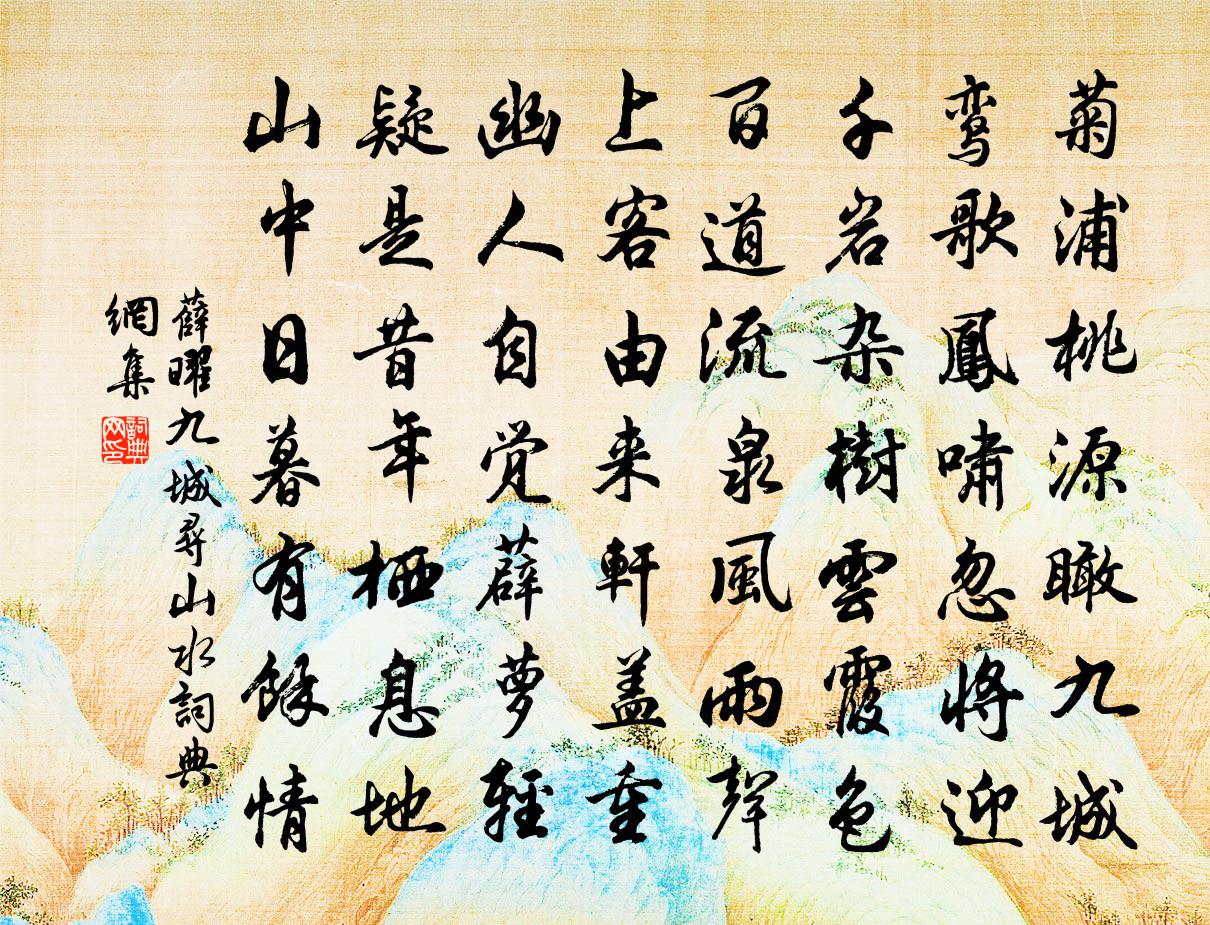 菊浦桃源瞰九城
鸾歌鳳嘯忽将迎
千岩杂樹雲霞色
百道流泉風雨聲
上客由来軒盖重
幽人自觉薜萝輕
疑是昔年栖息地
山中日暮有餘情
薛曜九城尋山水詞典
網集
詞典
网印